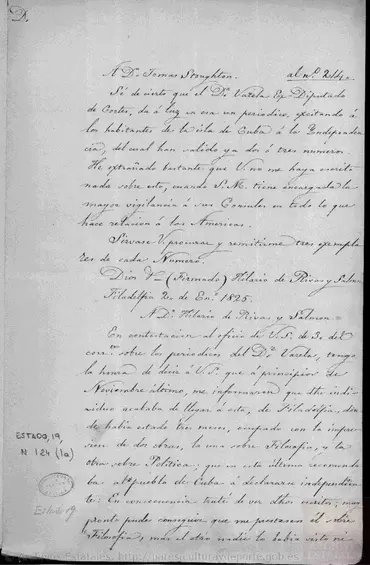 D.
A Dn. Tomas Stoughton. al nº 2114.
Sé de cierto que el Dr. Varela Ex Diputado
de Cortes, da á luz en esa un periodico, excitando á
los habitantes de la isla de Cuba á la Independen
cia, del cual han salido ya dos ó tres numeros.
He extrañado bastante que V. no me haya escrito
nada sobre esto, cuando S. M. tiene encargada la
mayor vigilancia á sus Consules en todo lo que
hace relacion á las Americas.
Sirvase V. procurar y remitirme tres exempla
res de cada Numero.
Dios &ª (Firmado) Hilario de Rivas y Salmon
Filadelfia 2 de Enº 1825.
A Dn. Hilario de Rivas y Salmon
En contestacion al oficio de V.S. de 3. del
corrte. sobre los periodicos del Dr. Varela, tengo
la honra de decir á V.S. que á principios de
Noviembre último, me informaron que dho indi
viduo acababa de llegar á esta, de Filadelfia, don
de habia estado tres meses, ocupado con la impre
sion de dos obras, la una sobre Filosofia, y la
otra sobre Politica; que en esta última recomenda
ba al pueblo de Cuba á declararse independien
te. En consecuencia traté de ver dhos escritos, muy
pronto pude conseguir que me prestasen el sobre
Filosofia, mas el otro nadie lo habia visto ni
ESTADO, 19,
N. 124 (1a)
Estado 19